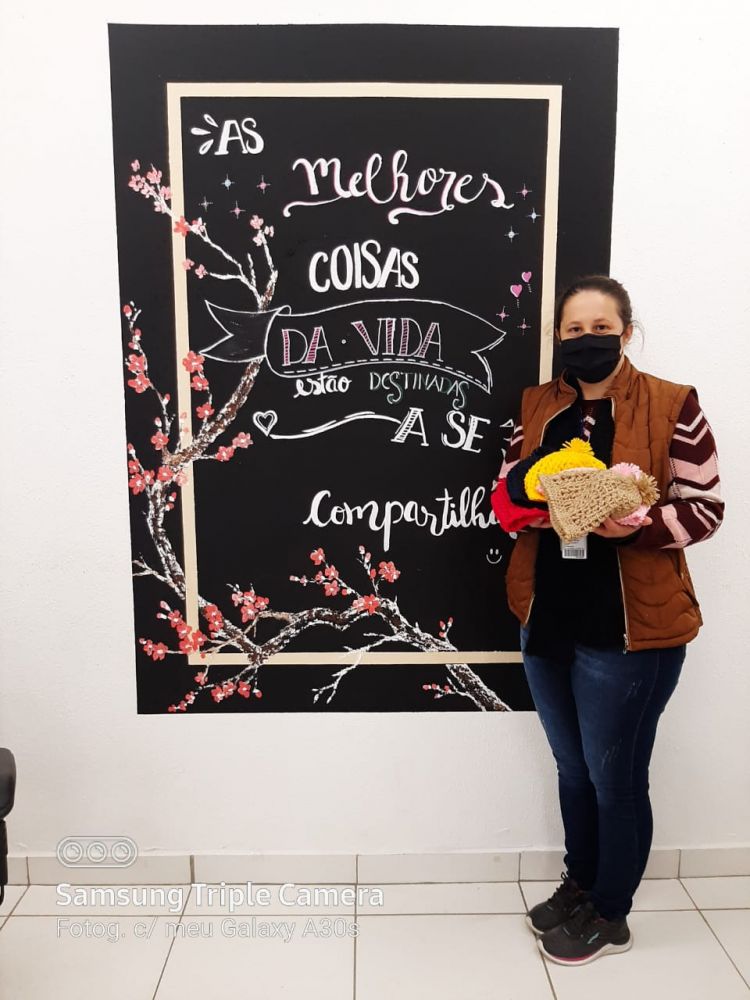 AS
Melhores
COISAS
DA · VIDA
estão DESTINADAS
A SE
Compartilh
Samsung Triple Camera
Fotog. c/ meu Galaxy A30s